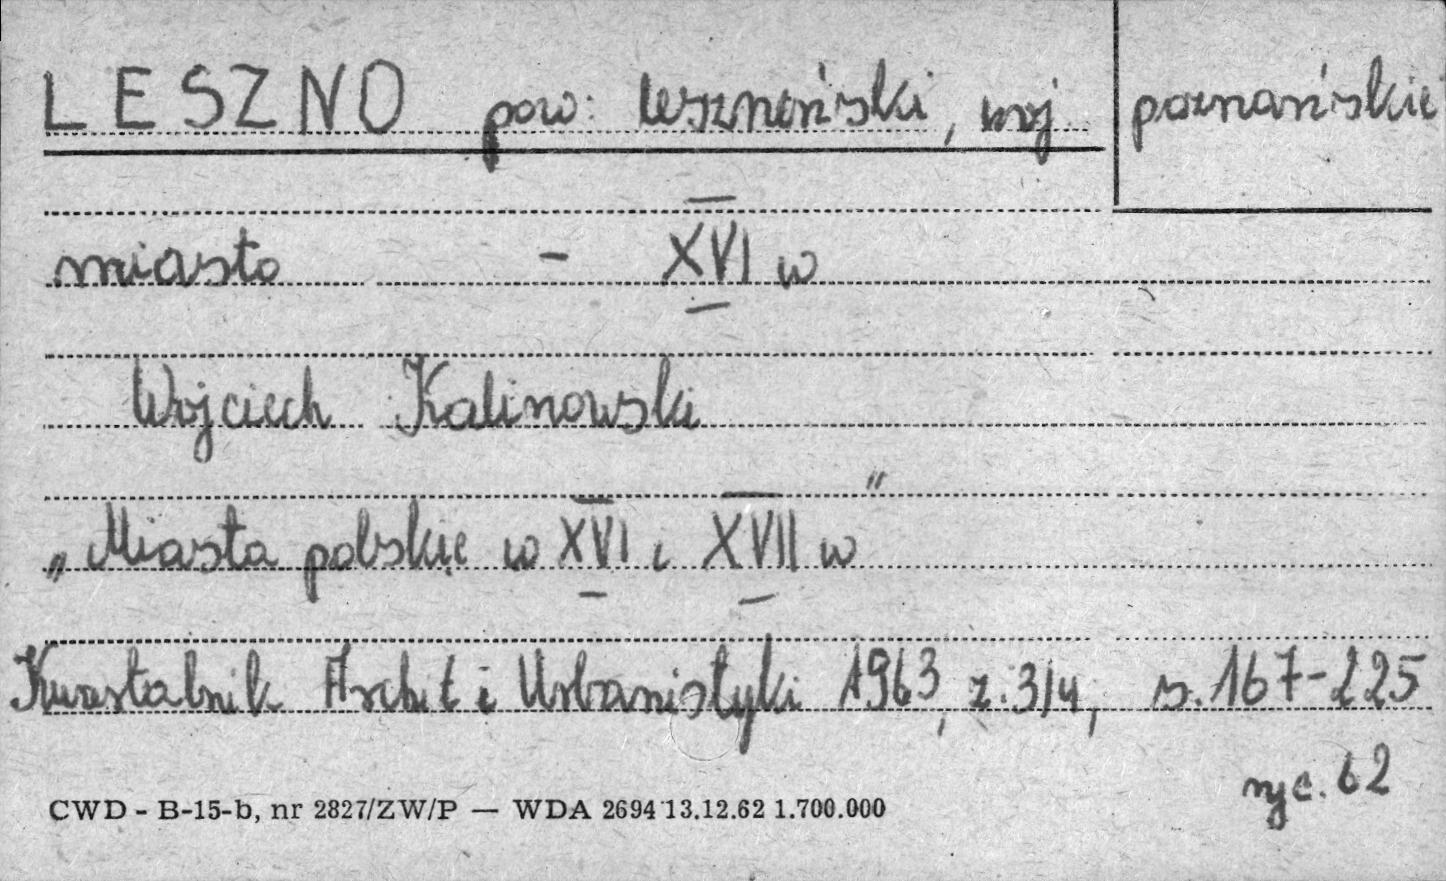 LESZNO pow: leszneński, woj poznańskie
miasto - XVI w
Wojciech Kalinowski
„Miasta polskie w XVI i XVII w"
Kwartalnik Archit i Urbanistyki 1963, z. 3/4, s. 167-225
ryc. 62
CWD - B-15-b, nr 2827/ZW/P — WDA 2694 13.12.62 1.700.000